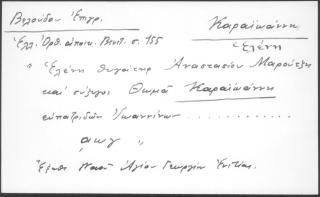 Βελούδου Ἐπιγρ.
Καραϊωάννη
Ἑλένη
Ἑλλ. Ὀρθ. ἀποικ. Βενετ. σ. 155
" Ἑλένη θυγάτηρ Ἀναστασίου Μαρούτζη
καί σύζυγος Θωμᾶ Καραϊωάννη
εὐπατριδῶν Ἰωαννίνων ...........
αωγ "
Ναοῦ Ἁγίου Γεωργίου Ἑνετίας.